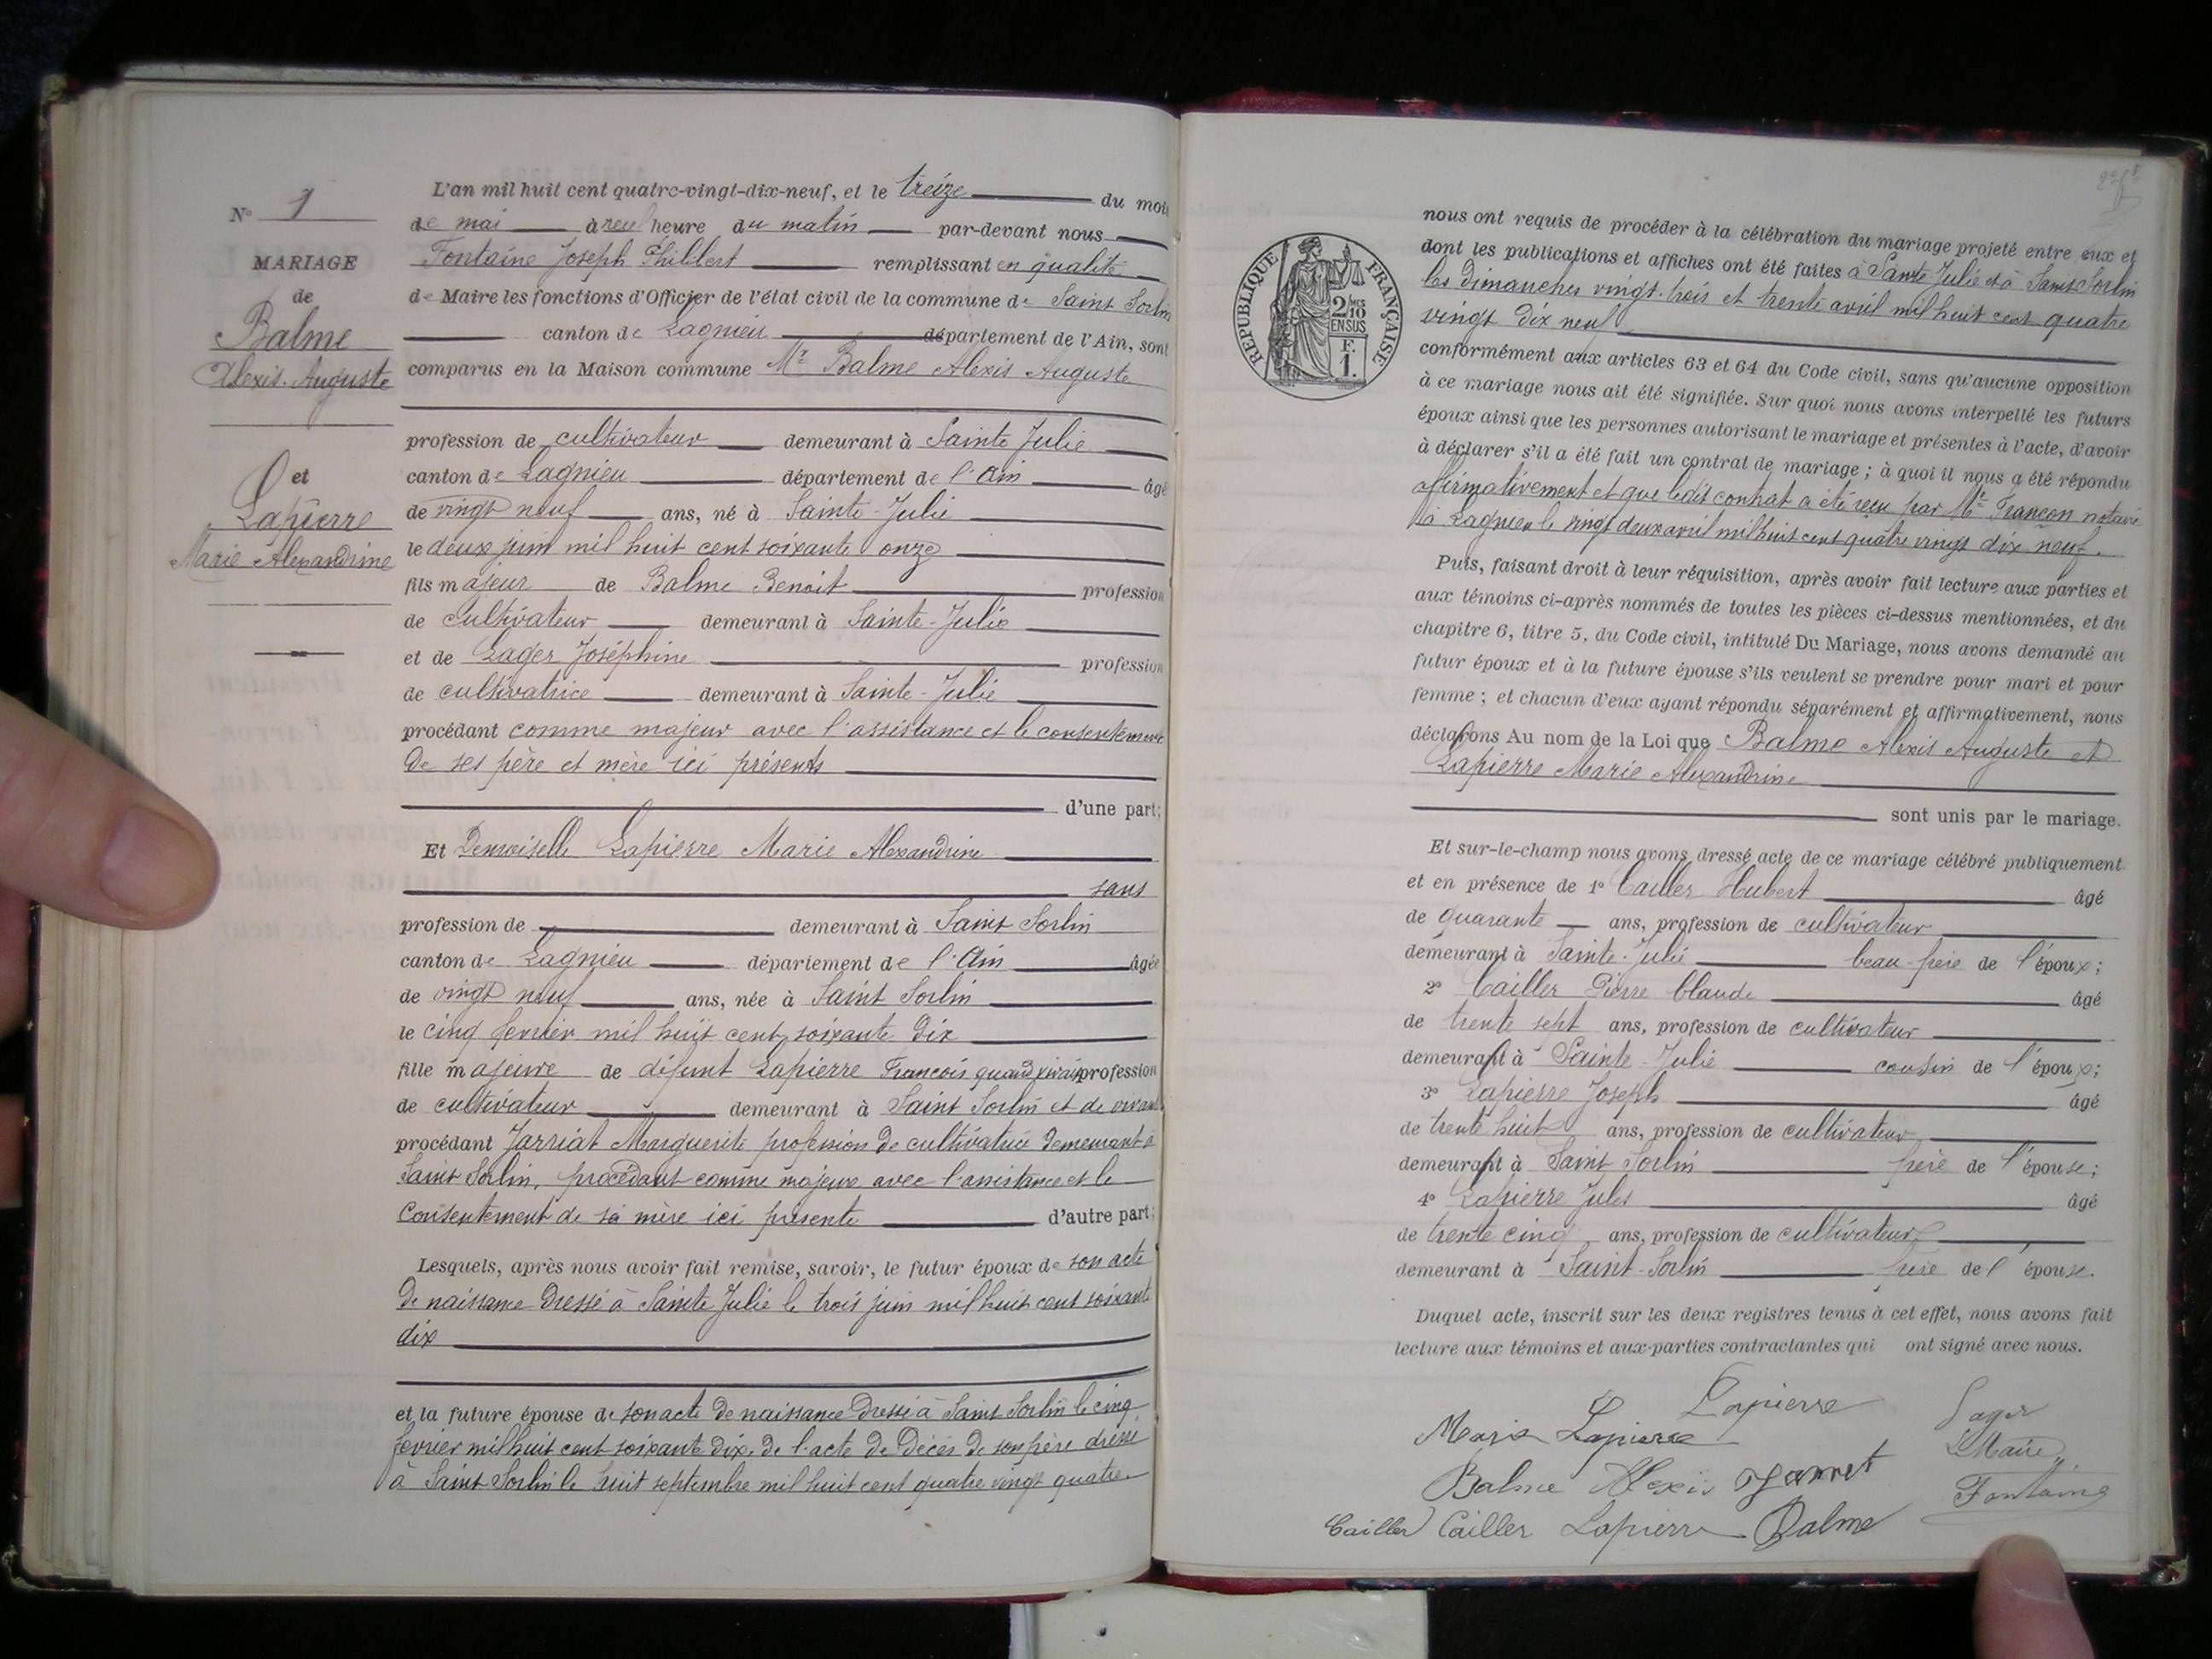 N° 1
MARIAGE
de
Balme
Alexis Auguste
et
Lapierre
Marie Alexandrine
L'an mil huit cent quatre-vingt-dix-neuf, et le treize du mois
de mai à heure du matin par-devant nous
Fontaine Joseph Philibert remplissant en qualité
de Maire les fonctions d'Officier de l'état civil de la commune de Saint Sorlin
canton de Lagnieu département de l'Ain, sont
comparus en la Maison commune Mr Balme Alexis Auguste
profession de cultivateur demeurant à Sainte Julie
canton de Lagnieu département de l'Ain âgé
de vingt neuf ans, né à Sainte-Julie
le deux juin mil huit cent soixante onze
fils majeur de Balme Benoit profession
de Cultivateur demeurant à Sainte-Julie
et de Lager Joséphine profession
de cultivatrice demeurant à Sainte-Julie
procédant comme majeur avec l'assistance et le consentement
de ses père et mère ici présents
d'une part;
Et Demoiselle Lapierre Marie Alexandrine
sans
profession de demeurant à Saint Sorlin
canton de Lagnieu département de l'Ain âgée
de vingt neuf ans, née à Saint Sorlin
le cinq fevrier mil huit cent soixante dix
fille majeure de défunt Lapierre François quand vivait profession
de cultivateur demeurant à Saint Sorlin et de vivante
procédant Jarriat Marguerite profession de cultivatrice demeurant à
Saint Sorlin, procédant comme majeur avec l'assistance et le
Consentement de sa mère ici présente d'autre part;
Lesquels, après nous avoir fait remise, savoir, le futur époux de son acte
de naissance dressé à Sainte Julie le trois juin mil huit cent soixante
dix
et la future épouse de son acte de naissance dressé à Saint Sorlin le cinq
fevrier mil huit cent soixante dix, de l'acte de décès de son père dressé
à Saint Sorlin le huit septembre mil huit cent quatre vingt quatre
RÉPUBLIQUE FRANÇAISE
2/10
EN SUS
F.
1.
nous ont requis de procéder à la célébration du mariage projeté entre eux et
dont les publications et affiches ont été faites à Sainte Julie et à Saint Sorlin
les dimanches vingt-trois et trente avril mil huit cent quatre
vingt dix neuf
conformément aux articles 63 et 64 du Code civil, sans qu'aucune opposition
à ce mariage nous ait été signifiée. Sur quoi nous avons interpellé les futurs
époux ainsi que les personnes autorisant le mariage et présentes à l'acte, d'avoir
à déclarer s'il a été fait un contrat de mariage; à quoi il nous a été répondu
affirmativement et que ledit contrat a été reçu par Me Françon notaire
à Lagnieu le vingt deux avril mil huit cent quatre vingt dix neuf.
Puis, faisant droit à leur réquisition, après avoir fait lecture aux parties et
aux témoins ci-après nommés de toutes les pièces ci-dessus mentionnées, et du
chapitre 6, titre 5, du Code civil, intitulé Du Mariage, nous avons demandé au
futur époux et à la future épouse s'ils veulent se prendre pour mari et pour
femme; et chacun d'eux ayant répondu séparément et affirmativement, nous
déclarons Au nom de la Loi que Balme Alexis Auguste et
Lapierre Marie Alexandrine
sont unis par le mariage.
Et sur-le-champ nous avons dressé acte de ce mariage célébré publiquement
et en présence de 1° Cailler Hubert âgé
de quarante ans, profession de cultivateur
demeurant à Sainte-Julie beau-frère de l'époux;
2° Cailler Pierre Claude âgé
de trente sept ans, profession de cultivateur
demeurant à Sainte-Julie cousin de l'époux;
3° Lapierre Joseph âgé
de trente huit ans, profession de cultivateur
demeurant à Saint Sorlin frère de l'épouse;
4° Lapierre Jules âgé
de trente cinq ans, profession de cultivateur
demeurant à Saint-Sorlin frère de l'épouse.
Duquel acte, inscrit sur les deux registres tenus à cet effet, nous avons fait
lecture aux témoins et aux parties contractantes qui ont signé avec nous.
Lapierre Lager
Marie Lapierre Maire
Balme Alexis
Fontaine
Cailler Cailler Lapierre Balme